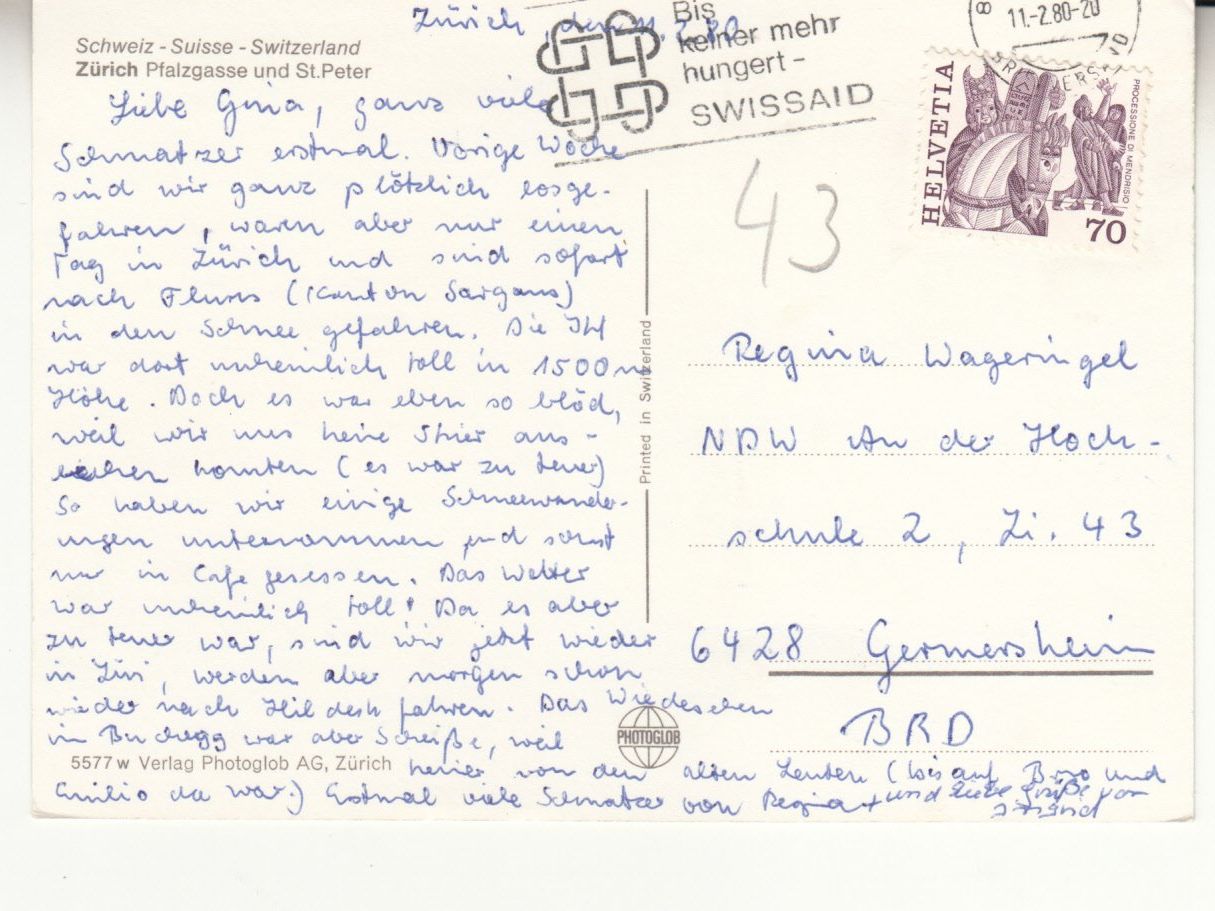 Zürich, den 11.2.80
Schweiz - Suisse - Switzerland
Zürich Pfalzgasse und St.Peter
Liebe Gina, ganz viele
Schmatzer erstmal. Vorige Woche
sind wir ganz plötzlich losge-
fahren, waren aber nur einen
Tag in Zürich und sind sofort
nach Flums (Kanton Sargans)
in den Schnee gefahren. Die
war dort unheimlich toll in 1500 m
Höhe. Doch es war eben so blöd,
weil wir uns keine Skier aus-
leihen konnten (es war zu teuer)
So haben wir einige Schneewander-
ungen unternommen und sonst
nur in Cafe gesessen. Das Wetter
war unheimlich toll! Da es aber
zu teuer war, sind wir jetzt wieder
in Züri, werden aber morgen schon
wieder nach Hildesh fahren. Das Wiedesehen
in Buchegg war aber Scheiße, weil
keiner von den alten Leuten (bis auf und
Emilio da war.) Erstmal viele Schmatzer von Regina + und liebe Grüße von
Bis
keiner mehr
hungert-
SWISSAID
8
11.-2.80-20
HELVETIA
PROCESSIONE DI MENDRISIO
70
43
Regina Wageringel
NDW An der Hoch-
schule 2, Zi. 43
6428 Germersheim
BRD
Printed in Switzerland
PHOTOGLOB
5577 w Verlag Photoglob AG, Zürich